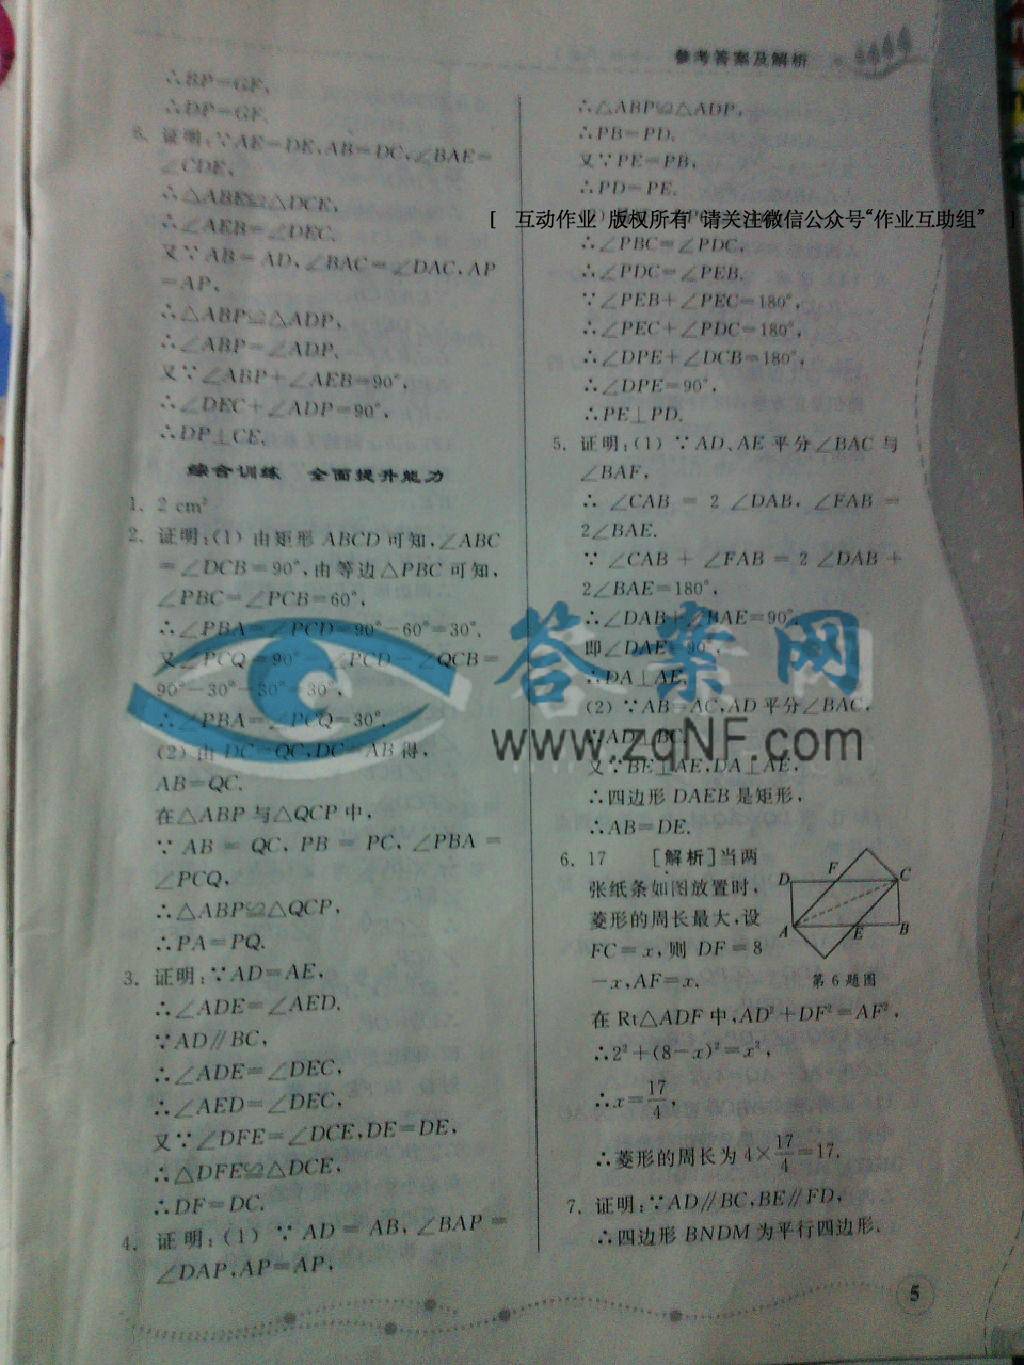 参考答案及解析
∴BP=GF,
∴DP=GF.
6. 证明:∵AE=DE,AB=DC,∠BAE=
∠CDE,
∴△ABE≌△DCE,
∴∠AEB=∠DEC.
又∵AB=AD,∠BAC=∠DAC,AP
=AP,
∴△ABP≌△ADP,
∴∠ABP=∠ADP.
又∵∠ABP+∠AEB=90°,
∴∠DEC+∠ADP=90°,
∴DP⊥CE.
综合训练 全面提升能力
1. 2 cm²
2. 证明:(1)由矩形ABCD可知,∠ABC
=∠DCB=90°,由等边△PBC可知,
∠PBC=∠PCB=60°,
∴∠PBA=∠PCD=90°-60°=30°,
又∠PCQ=90°-∠PCD-∠QCB=
90°-30°-30°=30°,
∴∠PBA=∠PCQ=30°.
(2)由DC=QC,DC=AB得,
AB=QC.
在△ABP与△QCP中,
∵AB=QC,PB=PC,∠PBA=
∠PCQ,
∴△ABP≌△QCP,
∴PA=PQ.
3. 证明:∵AD=AE,
∴∠ADE=∠AED.
∵AD∥BC,
∴∠ADE=∠DEC,
∴∠AED=∠DEC,
又∵∠DFE=∠DCE,DE=DE,
∴△DFE≌△DCE,
∴DF=DC.
4. 证明:(1)∵AD=AB,∠BAP=
∠DAP,AP=AP,
∴△ABP≌△ADP,
∴PB=PD.
又∵PE=PB,
∴PD=PE.
[ 互动作业 版权所有 请关注微信公众号“作业互助组” ]
∴∠PBC=∠PDC,
∴∠PDC=∠PEB.
∵∠PEB+∠PEC=180°,
∴∠PEC+∠PDC=180°,
∴∠DPE+∠DCB=180°,
∴∠DPE=90°,
∴PE⊥PD.
5. 证明:(1)∵AD、AE平分∠BAC与
∠BAF,
∴∠CAB=2∠DAB,∠FAB=
2∠BAE.
∵∠CAB+∠FAB=2∠DAB+
2∠BAE=180°,
∴∠DAB+∠BAE=90°,
即∠DAE=90°,
∴DA⊥AE.
(2)∵AB=AC,AD平分∠BAC,
∴AD⊥BC.
又∵BE⊥AE,DA⊥AE,
∴四边形DAEB是矩形,
∴AB=DE.
6. 17 [解析]当两
张纸条如图放置时,
菱形的周长最大,设
FC=x,则DF=8
-x,AF=x,
D F C
A E B
第6题图
在Rt△ADF中,AD²+DF²=AF²,
∴2²+(8-x)²=x²,
∴x=17/4,
∴菱形的周长为4×17/4=17.
7. 证明:∵AD∥BC,BE∥FD,
∴四边形BNDM为平行四边形.
5
答案网
www.zqNF.com